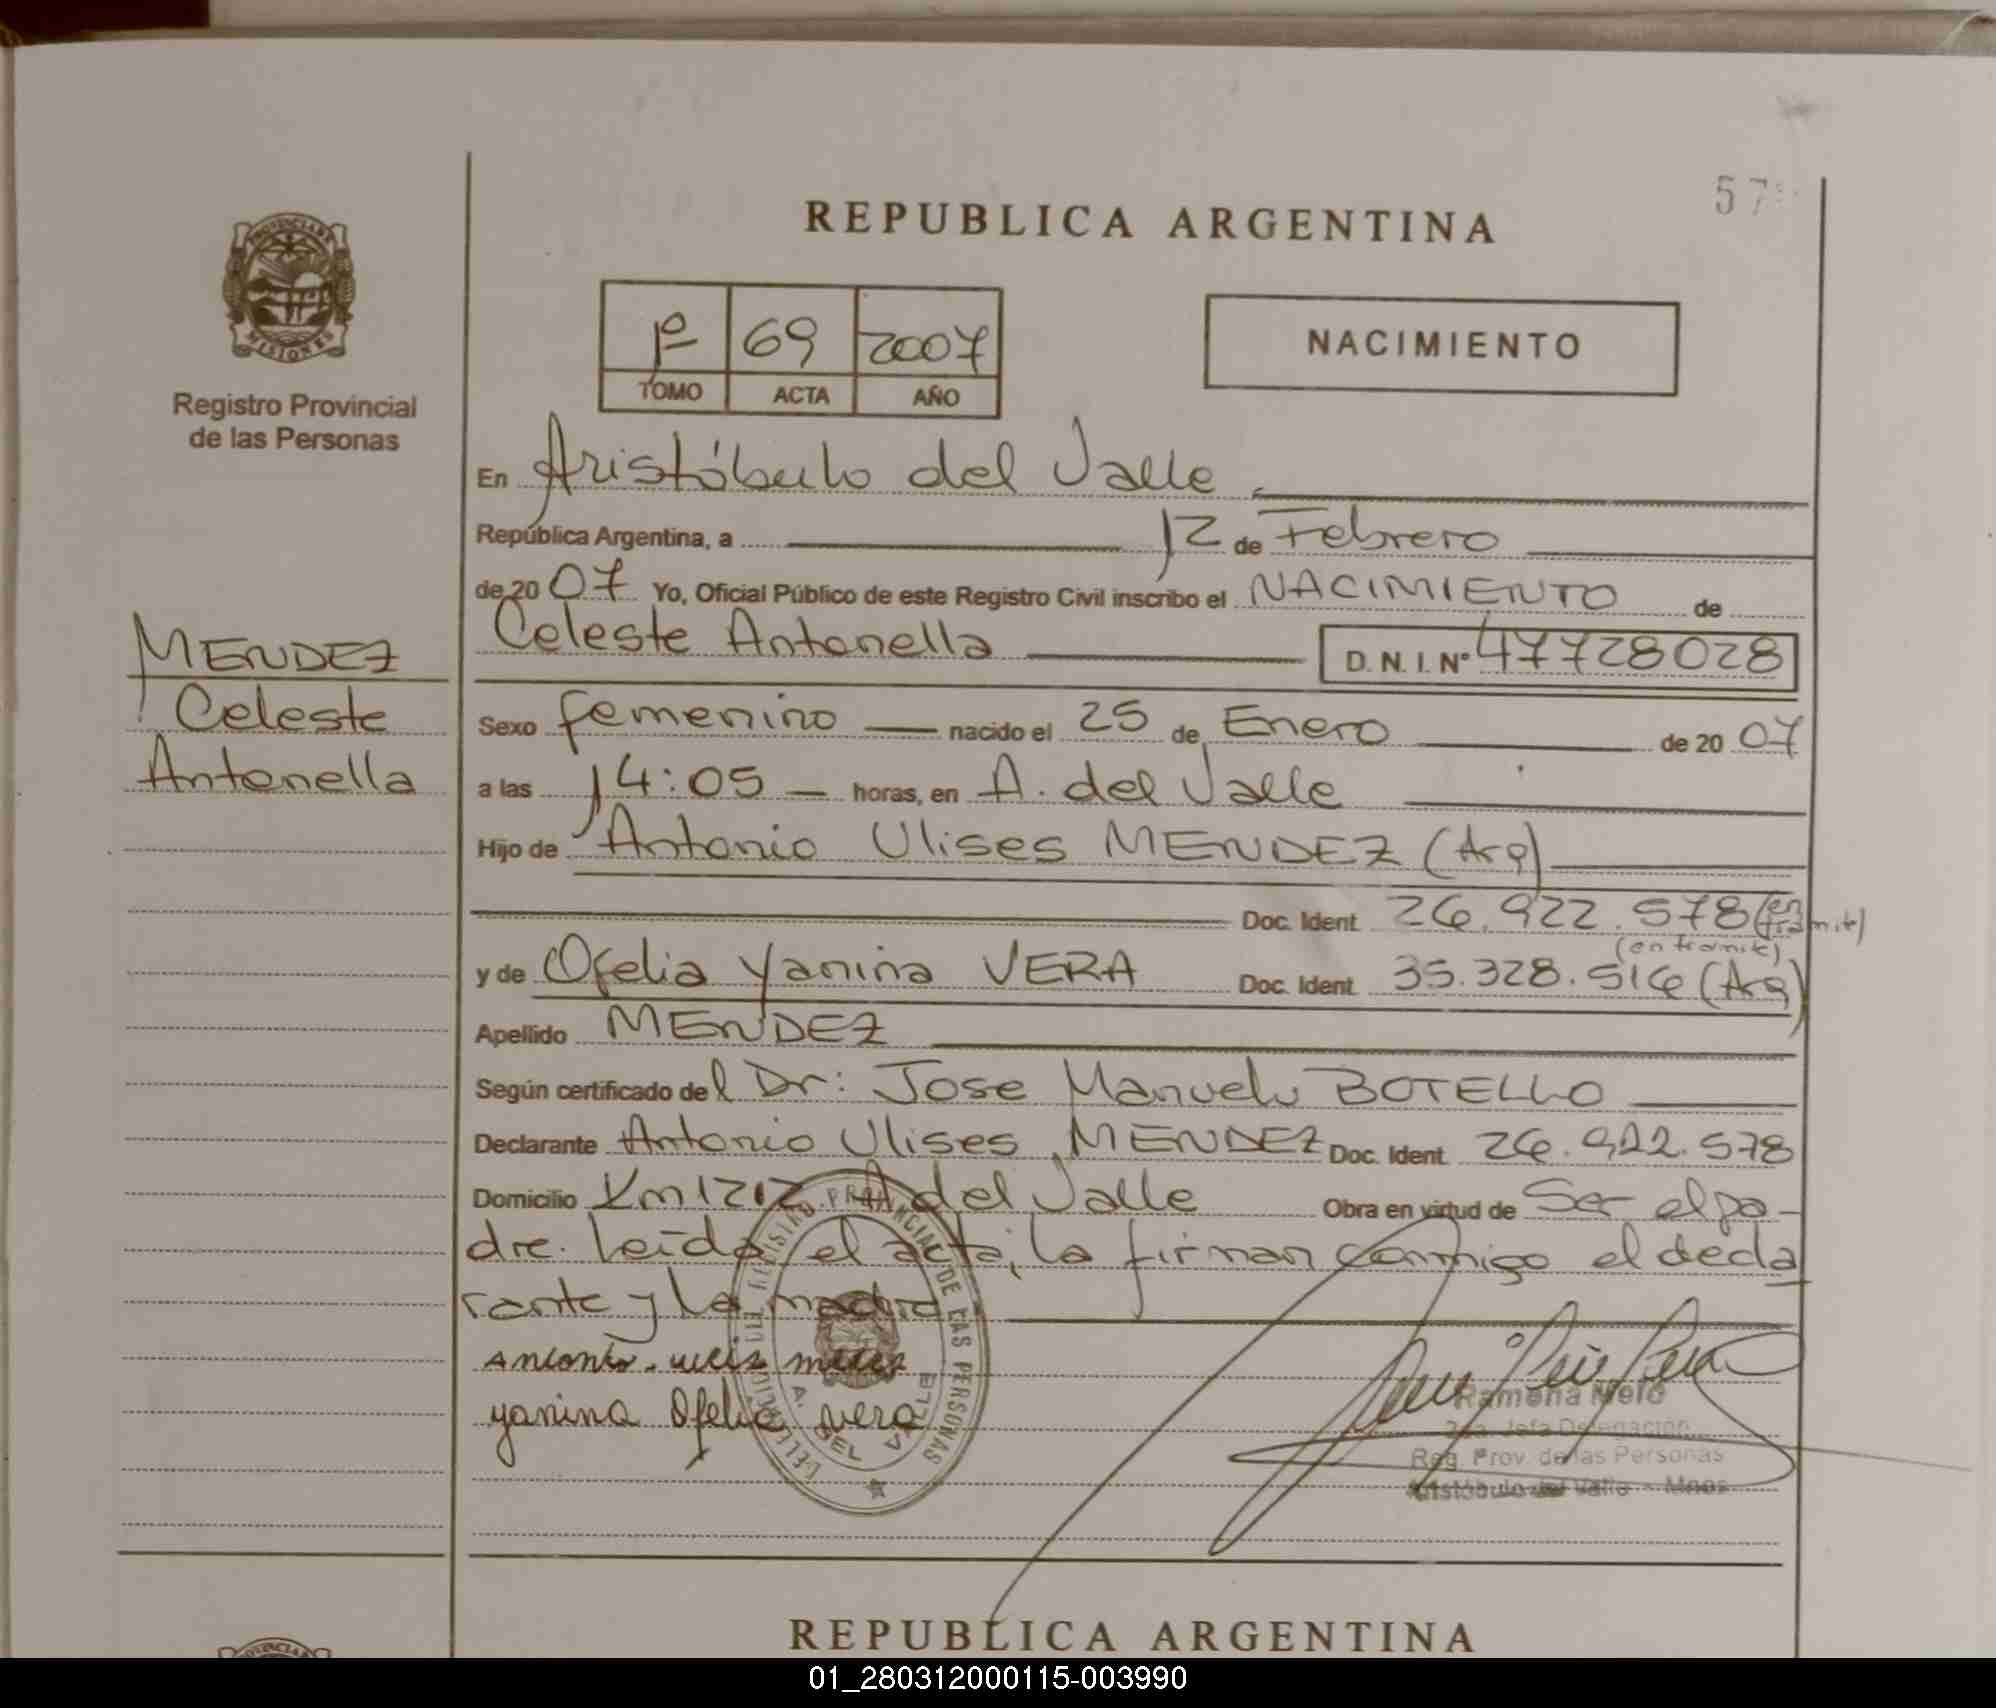 57
REPUBLICA ARGENTINA
PROVINCIA DE MISIONES
Registro Provincial
de las Personas
1º 69 2007
TOMO ACTA AÑO
NACIMIENTO
En Aristóbulo del Valle
República Argentina, a 12 de Febrero
de 2007 Yo, Oficial Público de este Registro Civil inscribo el NACIMIENTO de
MENDEZ
Celeste
Antonella
Celeste Antonella D.N.I. Nº 47728028
Sexo femenino nacido el 25 de Enero de 2007
a las 14:05 horas, en A. del Valle
Hijo de Antonio Ulises MENDEZ (Arg)
Doc. Ident. 26.922.578 (en tramite)
(en tramite)
y de Ofelia Yanina VERA Doc. Ident. 35.328.516 (Arg)
Apellido MENDEZ
Según certificado del Dr: Jose Manuel BOTELLO
Declarante Antonio Ulises MENDEZ Doc. Ident. 26.922.578
Domicilio Km 1212 A del Valle Obra en virtud de Ser el pa-
dre. Leída el acta, la firman conmigo el decla
rante y la madre
yanina Ofelia vera
REGISTRO PROVINCIAL DE LAS PERSONAS
A. DEL VALLE
Ramona Melo
2da. Jefa Delegación
Reg. Prov. de las Personas
Aristóbulo del Valle - Mnes.
REPUBLICA ARGENTINA
01_280312000115-003990